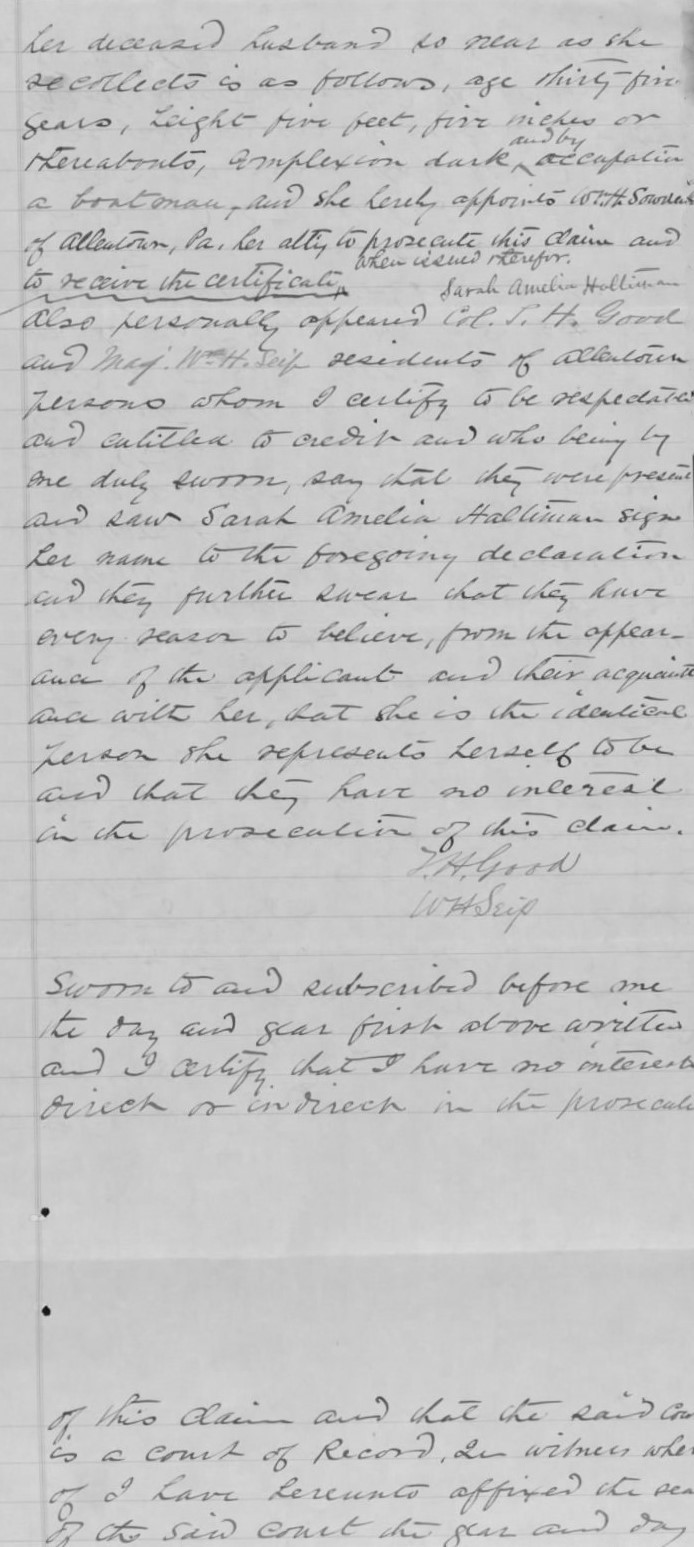 her deceased husband so near as she
recollects is as follows, age thirty five
years, height five feet, five inches or
and by
thereabouts, complexion dark, occupation
a boatman, and she hereby appoints Wm. H. Sowden
of Allentown, Pa. her atty to prosecute this claim and
when issued therefor.
to receive the certificate
Sarah Amelia Haltiman
Also personally appeared Col. T. H. Good
and Maj. Wm H. Seip residents of Allentown
persons whom I certify to be respectable
and entitled to credit and who being by
me duly sworn, say that they were present
and saw Sarah Amelia Haltiman sign
her name to the foregoing declaration
and they further swear that they have
every reason to believe, from the appear-
ance of the applicant and their acquaint
ance with her, that she is the identical
person she represents herself to be
and that they have no interest
in the prosecution of this claim.
T. H. Good
W H Seip
Sworn to and subscribed before me
the day and year first above written
and I certify that I have no interest
direct or indirect in the prosecuti
of this claim and that the said cou
is a court of Record, In witness wher
of I have hereunto affixed the sea
of the said court the year and day